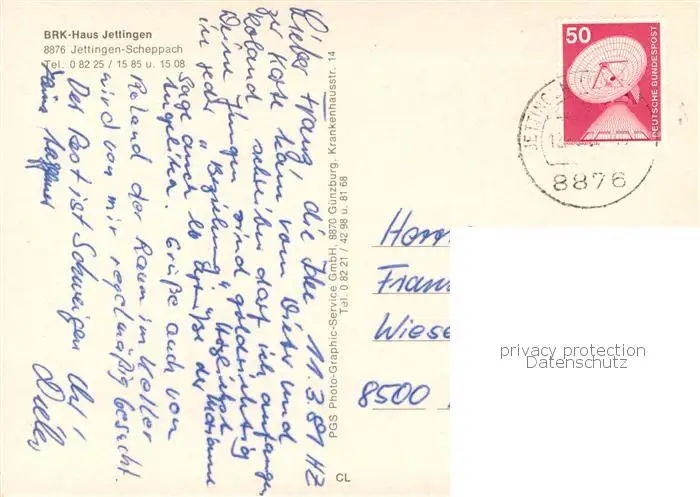 BRK-Haus Jettingen
8876 Jettingen-Scheppach
Tel. 0 82 25 / 15 85 u. 15 08
Lieber Franz! die Ehe 11.3.81 HZ
zur Kose kam vom Dieter und
Roland schreiben darf ich anfangen
Deine Jungen sind goldrichtig
in jeder Beziehung
Sage auch Grüße der Mariane
Angelika. Grüße auch von
Roland der Raum im Keller
wird von mir regelmäßig besucht.
Der Rest ist Schweigen
Dieter
PGS Photo-Graphic-Service GmbH, 8870 Günzburg, Krankenhausstr. 14
Tel. 0 82 21 / 42 98 u. 81 68
CL
50
DEUTSCHE BUNDESPOST
JETTINGEN
8876
Herrn
Fran
Wiese
8500
privacy protection
Datenschutz